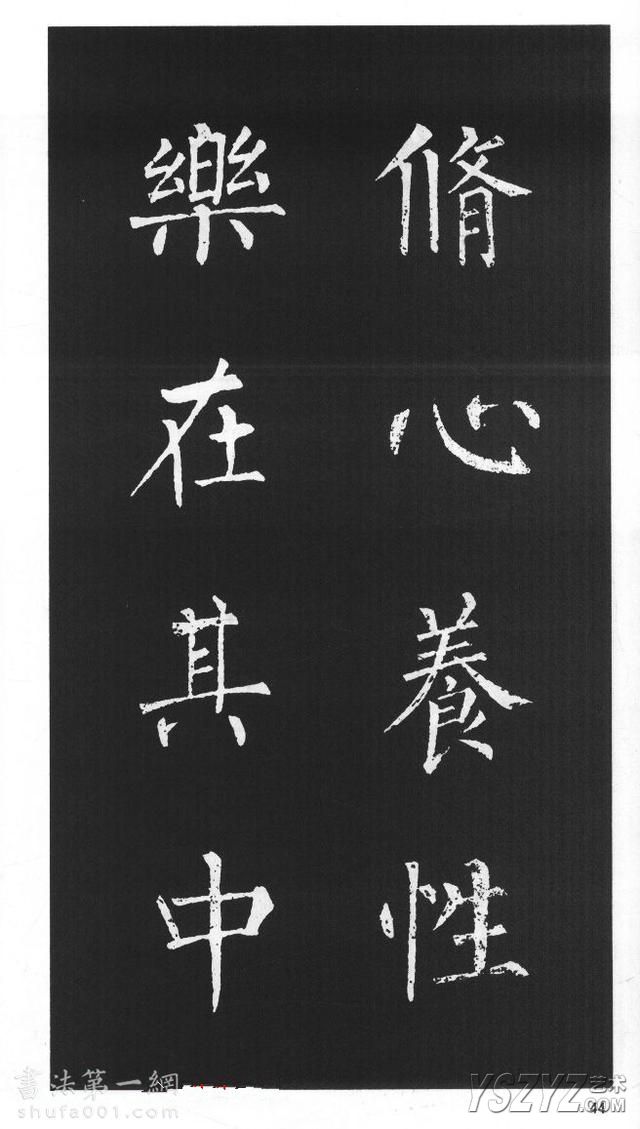 脩心養性
樂在其中
書法第一網
shufa001.com
YSZYZ艺术
.COM
44